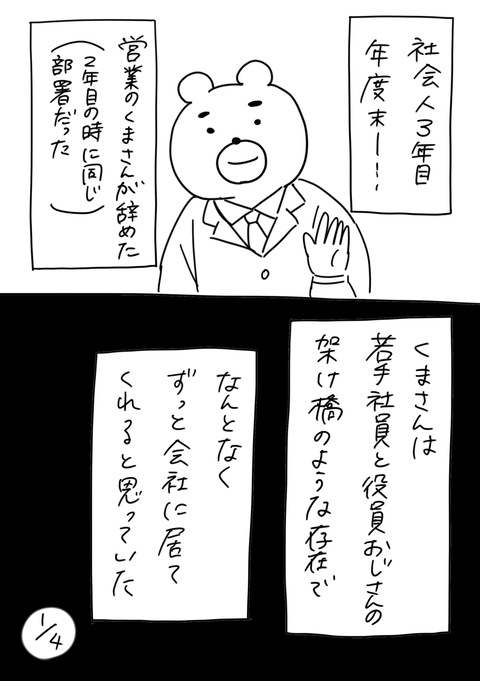 社会人3年目
年度末ー…
営業のくまさんが辞めた
(2年目の時に同じ
部署だった)
くまさんは
若手社員と役員おじさんの
架け橋のような存在で
なんとなく
ずっと会社に居て
くれると思っていた
1/4